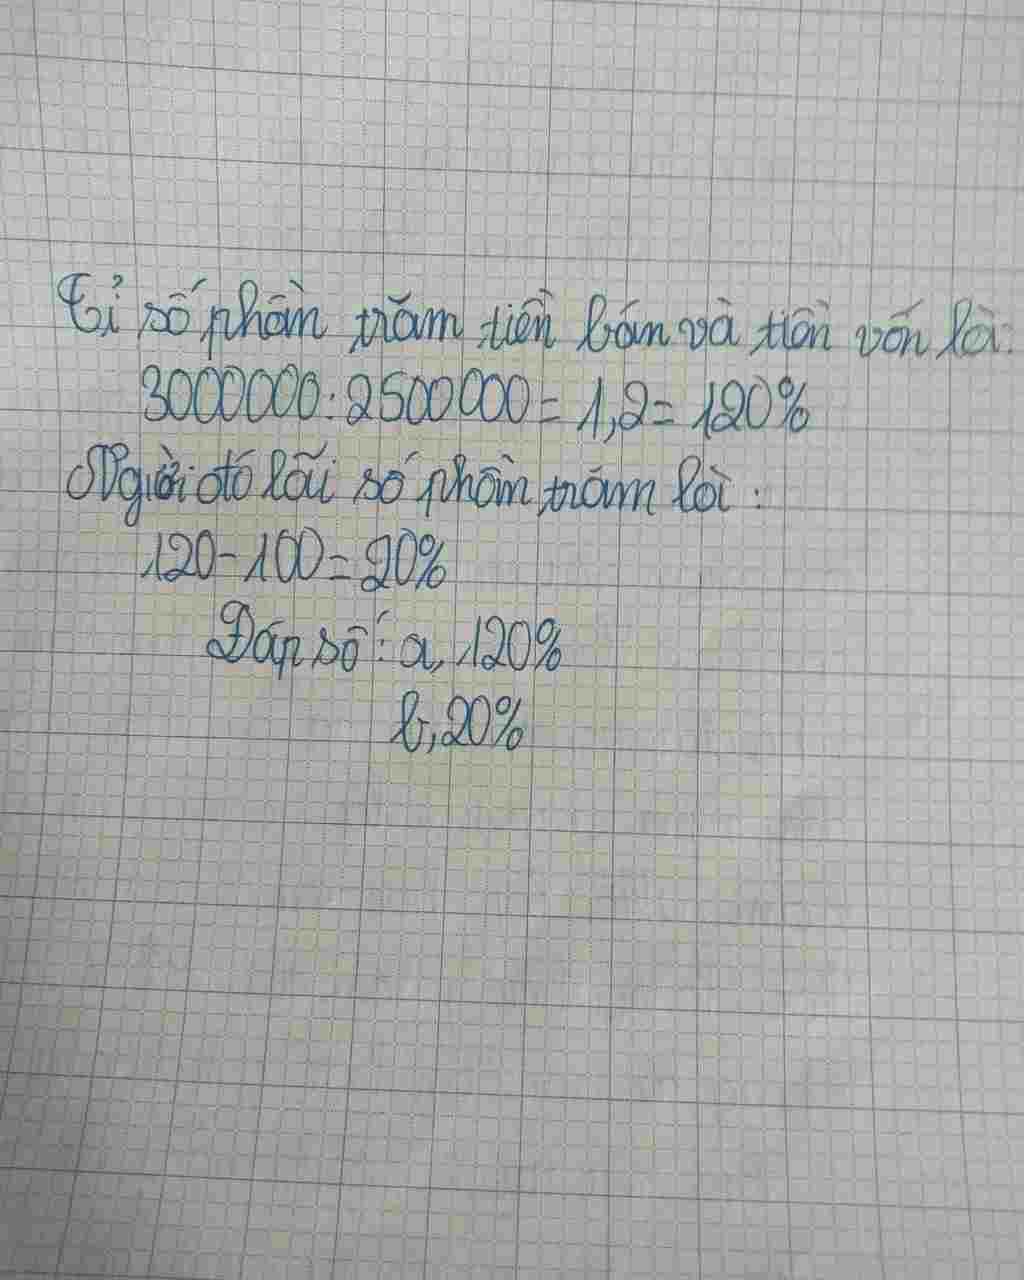 Tỉ số phần trăm tiền bán và tiền vốn là:
3000000:2500000=1,2=120%
Người đó lãi số phần trăm là:
120-100=20%
Đáp số: a, 120%
b, 20%